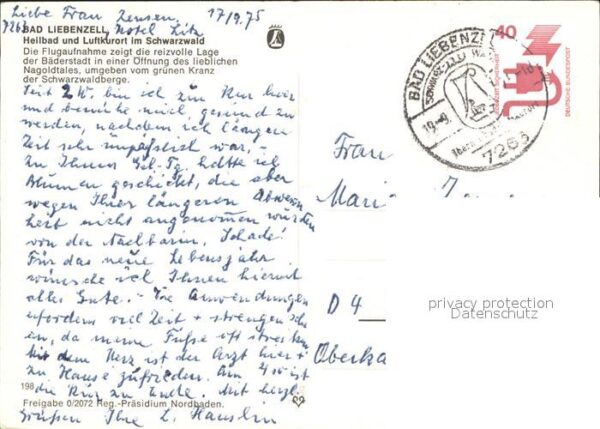 Liebe Frau Jensen, 17/9.75
7263 BAD LIEBENZELL, Hotel Litz
Heilbad und Luftkurort im Schwarzwald
Die Flugaufnahme zeigt die reizvolle Lage
der Bäderstadt in einer Öffnung des lieblichen
Nagoldtales, umgeben vom grünen Kranz
der Schwarzwaldberge.
Seit 2 W. bin ich zur Kur hier
und bemühe mich, gesund zu
werden, nachdem ich längere
Zeit sehr unpäßlich war. –
Zu Ihrem Geb.-Tg. hatte ich
Blumen geschickt, die aber
wegen Ihrer längeren Abwesen
heit nicht angenommen wurden
von der Nachbarin. Schade!
Für das neue Lebensjahr
wünsche ich Ihnen hiermit
alles Gute. – Die Anwendungen
erfordern viel Zeit + strengen
en, da meine Füße oft
Mit dem Herz ist der Arzt hier +
zu Hause zufrieden. Am ist
die Kur zu Ende. Mit herzl.
Grüßen Ihre L. Häuslin
198
Freigabe 0/2072 Reg.-Präsidium Nordbaden.
40
DEUTSCHE BUNDESPOST
BAD LIEBENZELL
19.-9.
7263
Frau
Mari
D 4
Oberka
privacy protection
Datenschutz